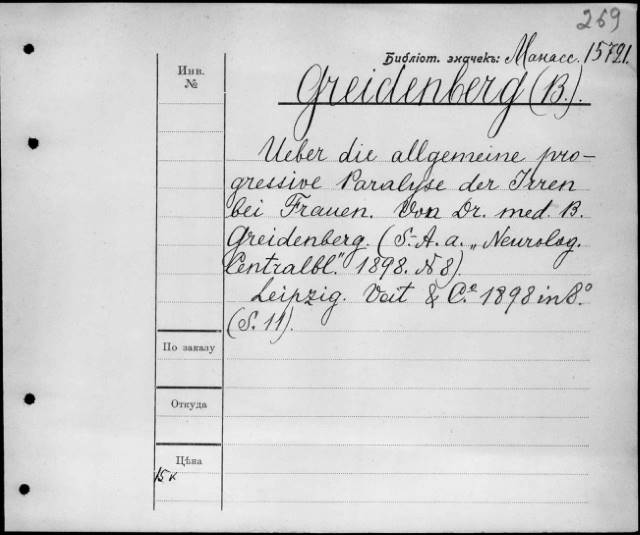 269
Библіот. значекъ: Манасс. 15721.
Инв.
№
Greidenberg (B.).
Ueber die allgemeine pro-
gressive Paralyse der Irren
bei Frauen. Von Dr. med. B.
Greidenberg. (S.-A. a. „Neurolog.
Centralbl." 1898. N 8).
Leipzig. Veit & C.º 1898 in 8.º
(S. 11).
По заказу
Откуда
Цѣна
15 к